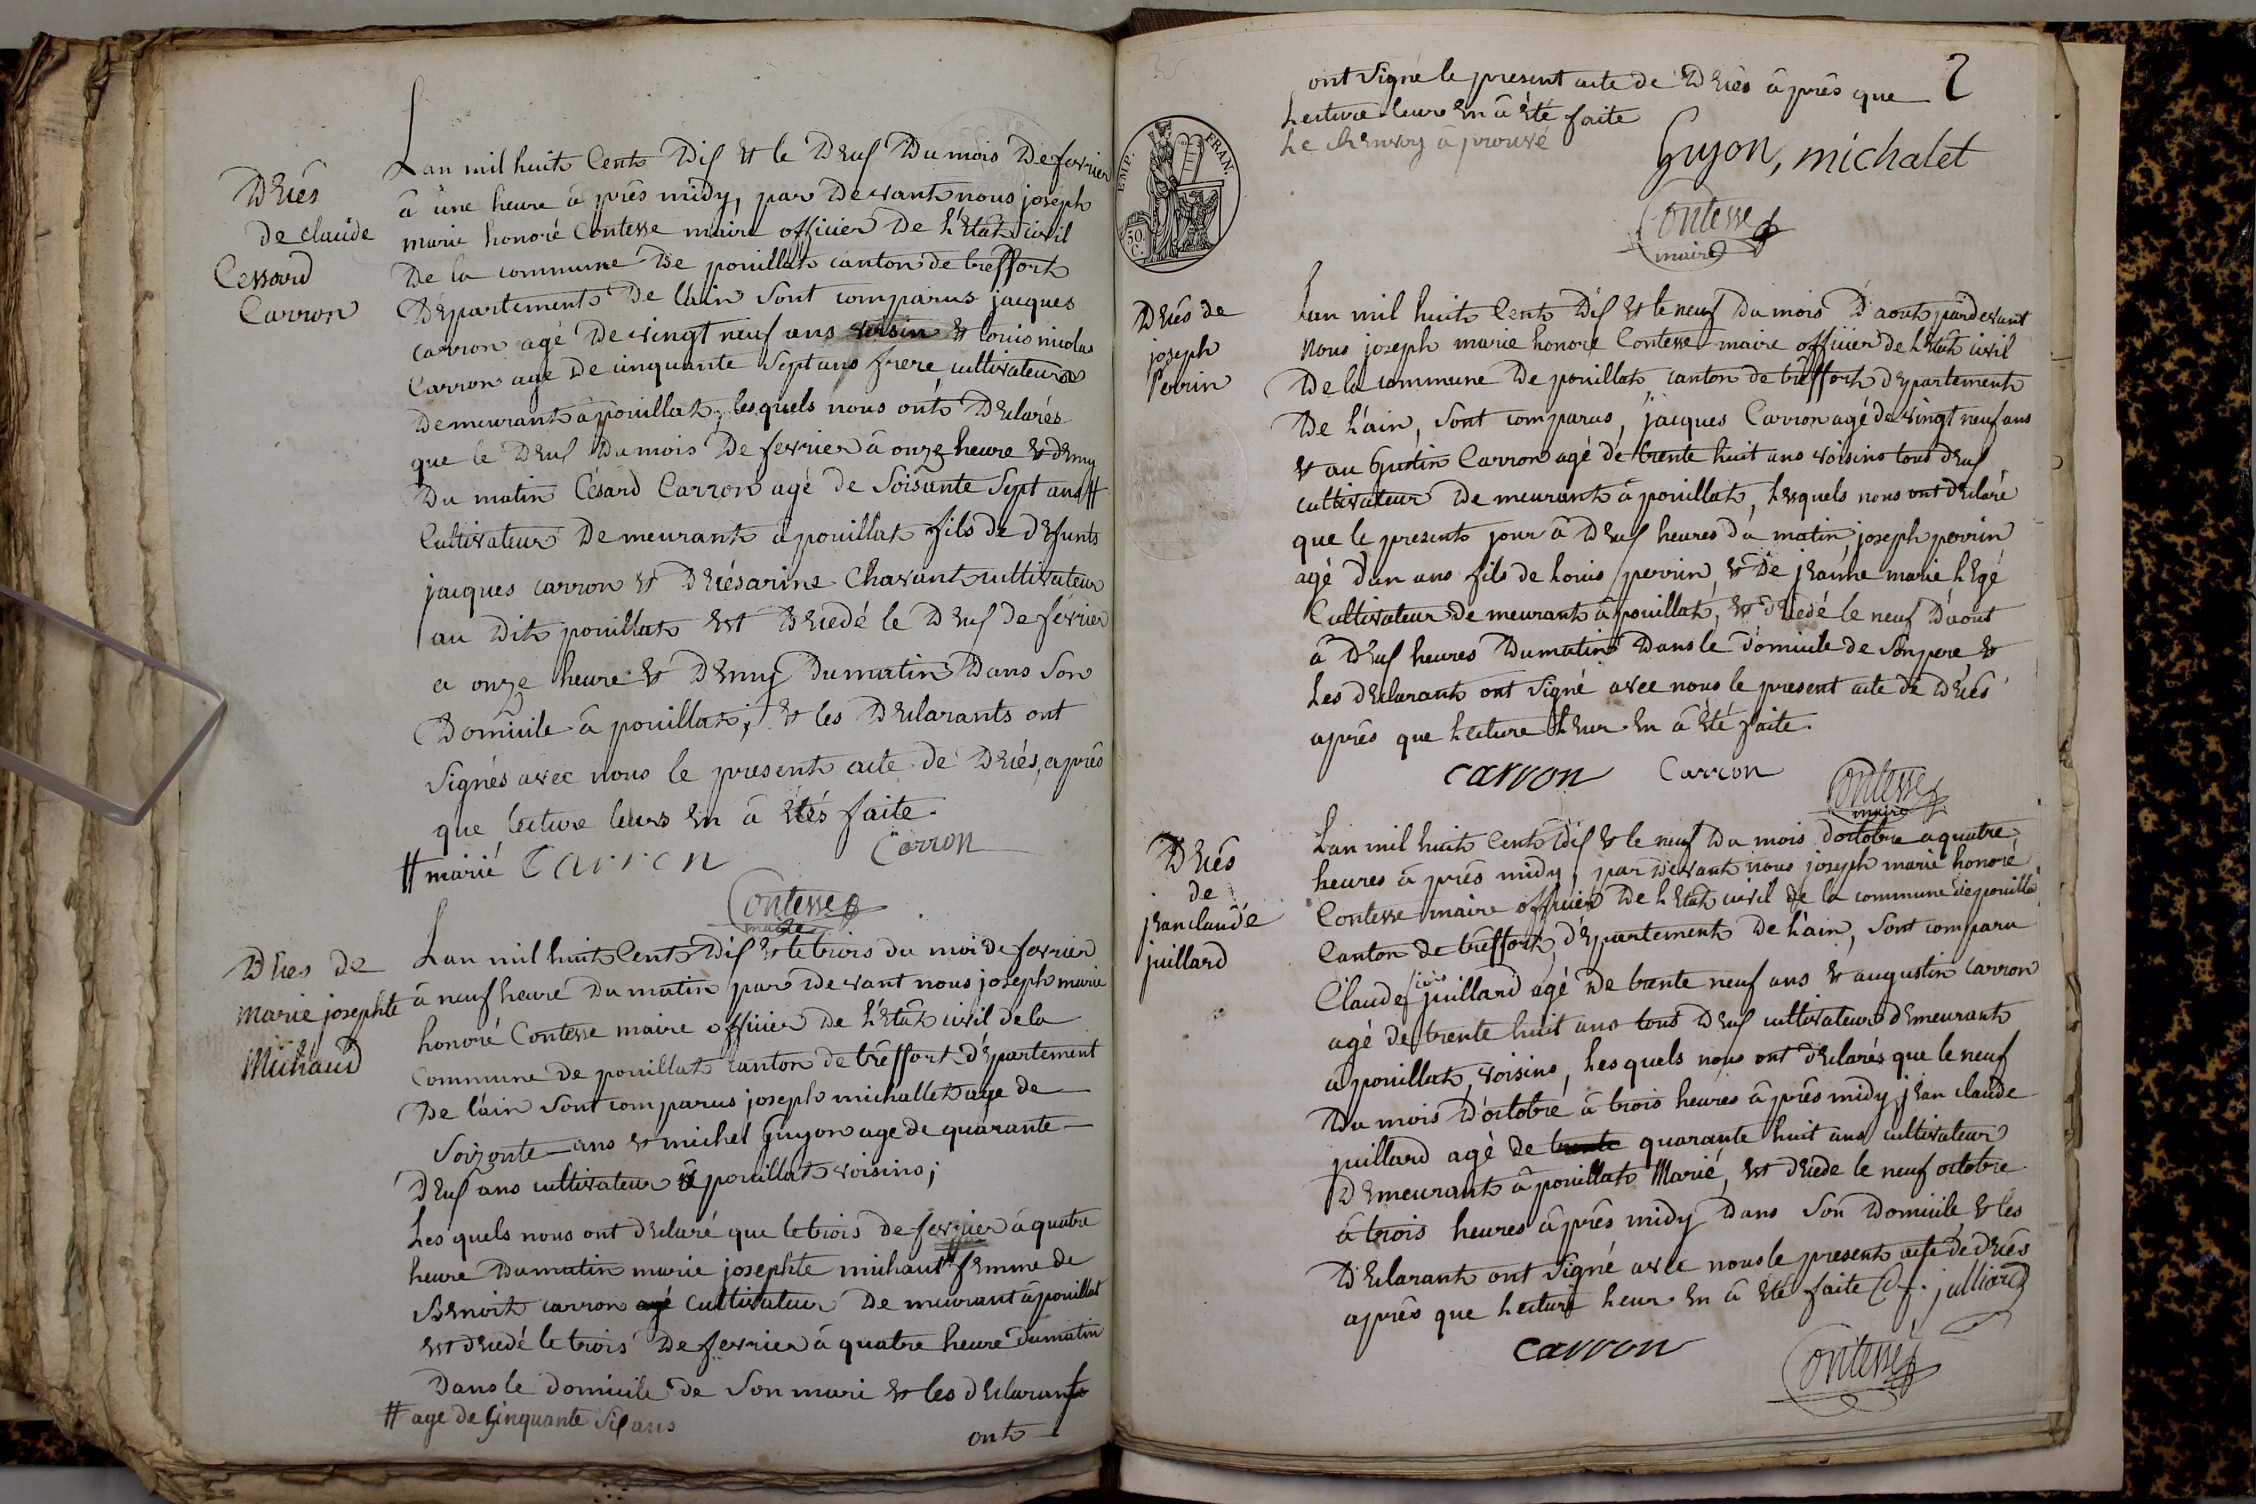 Décés
de claude
Cessard
Carron
Lan mil huit Cent Dix et le Deux Du mois De fevrier
â une heure â prês midy, par Devant nous joseph
marie honoré Contesse maire officier De l'Etat civil
De la commune De pouillat canton de treffort
Departement De láin sont comparus jacques
carron agé De vingt neuf ans voisin et Louis nicolas
Carron age De cinquante Sept ans frere cultivateurs
Demeurant â pouillat, lesquels nous ont Declarés
que le Deux Du mois De fevrier â onze heure et demy
Du matin Césard Carron agé de Soisante Sept ans #
Cultivateur Demeurant â pouillat fils de defunts
jacques carron et Chavant cultivateur
au Dit pouillat est Decedé le Deux de fevrier
a onze heure et Demy Du matin Dans Son
Domicile â pouillat; et les Declarants ont
Signés avec nous le present acte de Decés, aprés
que lecture leurs En â Etés faite
# marié Carron Carron
Contesse
maire
Déces de
Marie josephte
Michaud
Lan mil huit Cent Dix et le trois du moi de fevrier
â neuf heure Du matin par Devant nous joseph marie
honoré Contesse maire officier De l'Etat civil de la
Commune De pouillat canton de trêffort Département
De láin sont comparus joseph michallet age de
Soizante ans et michel Guyon age de quarante
Deux ans cultivateur â pouillat voisins;
Lesquels nous ont declaré que le trois De fevrier â quatre
heure Du matin marie josephte michaut # femme de
Benoit carron agé Cultivateur Demeurant â pouillat
est decedé le trois De fevrier â quatre heure du matin
Dans le domicile De Son mari et les declarants
# age de Cinquante Six ans
ont
2
ont Signé le present acte de Décés âprês que
Lecture leur En â Eté faite
Le Renvoy âprouvé
Guyon, michalet
Contesse
maire
EMP. FRAN.
50. C.
Décés de
joseph
Perrin
Lan mil huit Cent Dix et le neuf Du mois D'aout pardevant
Nous joseph marie honoré Contesse maire officier de l'Etat civil
De la commune De pouillat canton de trêffort departement
De l'ain, sont comparus, jacques Carron agé de vingt neuf ans
et au Gustin Carron agé de trente huit ans voisins tous deux
cultivateur Demeurant â pouillat, Lesquels nous ont declaré
que le present jour â Deux heures du matin, joseph perrin
agé dun ans fils de Louis perrin, et De jeanne marie
Cultivateur Demeurant â pouillat, est Decedé le neuf Dáout
â Deux heures Du matin Dans le domicile de Son pere et
Les declarant ont Signé avec nous le present acte de Décés
aprês que Lecture Leur En â Eté faite.
carron Carron Contesse
maire
Décés
de
jean claude
juillard
Lan mil huit Cent Dix et le neuf Du mois doctobre a quatre
heures â prês midy, par Devant nous joseph marie honoré
Contesse maire officier De l'Etat civil de la commune de pouilla
Canton de trêffort, Département De l'ain, sont comparu
Claude juillard agé De trente neuf ans et augustin carron
agé de trente huit ans tous Deux cultivateur demeurant
a pouillat, voisins, Lesquels nous ont declarés que le neuf
Du mois D'octobre â trois heures âprês midy, jean claude
juillard agé de trente quarante huit ans cultivateur
Demeurant â pouillat Marié, est decede le neuf octobre
â trois heures âprês midy Dans Son Domicile et les
Declarant ont Signé avec nous le present acte de decés
aprés que Lecture Leur En â Eté faite C. f. julliard
carron
Contesse